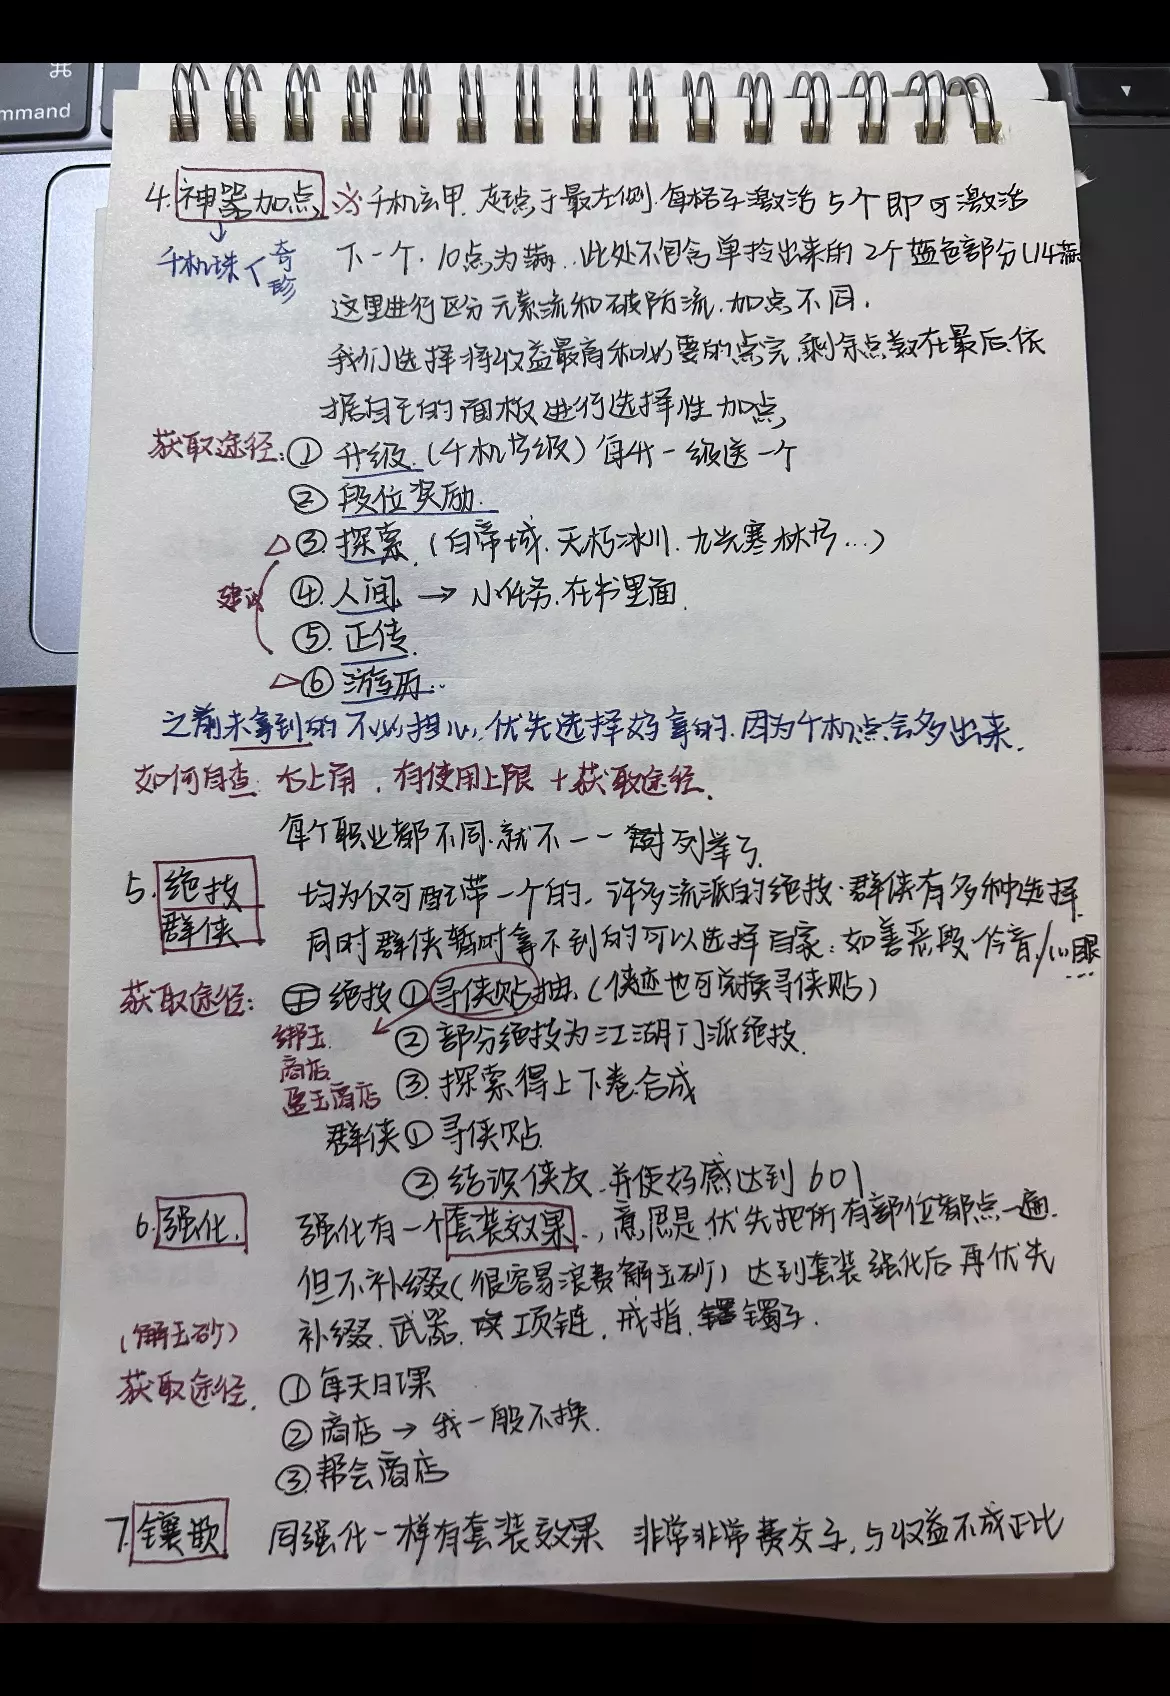 ⌘
mmand
▼
4. 神器加点 ※千机玄甲.起点于最左侧.每格子激活5个即可激活
↓
千机珠 奇珍
下一个.10点为满.此处不包含单拎出来的2个蓝色部分(14满
这里进行区分元素流和破防流.加点不同.
我们选择将收益最高和必要的点完,剩余点数在最后.依
据自己的面板进行选择性加点.
获取途径:① 升级.(千机等级)每升一级送一个
② 段位奖励.
△③ 探索.(白帝城.天朽冰川.九光寒林等...)
建议
④.人间 → 小任务.在书里面.
⑤.正传.
△⑥ 游历..
之前未拿到的不必担心,优先选择好拿的.因为千机点会多出来.
如何自查 右上角,有使用上限+获取途径.
每个职业都不同.就不一一列举了.
5. 绝技 群侠 均为仅可配带一个的.许多流派的绝技.群侠有多种选择.
同时群侠暂时拿不到的可以选择百家:如善恶段 伶音/心眼...
获取途径: 绝技 ① 寻侠贴抽.(侠迹也可兑换寻侠贴)
绑玉
商店
玉商店
② 部分绝技为江湖门派绝技.
③ 探索得上下卷.合成
群侠 ① 寻侠贴
② 结识侠友.并使好感达到601
6. 强化. 强化有一个套装效果.,意思是优先把所有部位都点一遍.
但不补缀(很容易浪费解玉砂)达到套装强化后再优先
(解玉砂) 补缀.武器.项链.戒指.镯子.
获取途径. ① 每天日课
② 商店 → 我一般不换.
③ 帮会商店
7. 镶欺 同强化一样有套装效果 非常非常费交子,与收益不成正比